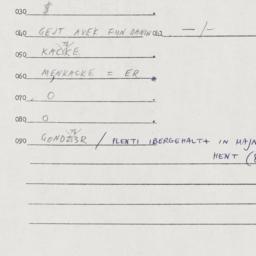 030 $
040 GEJT AVEK FUN DANIN 063 —/-
050 KAČKE
060 MENKACKE = ER
070 0
080 0
090 / PLENTI IBERGEHALT+ IN MAJN
HENT (